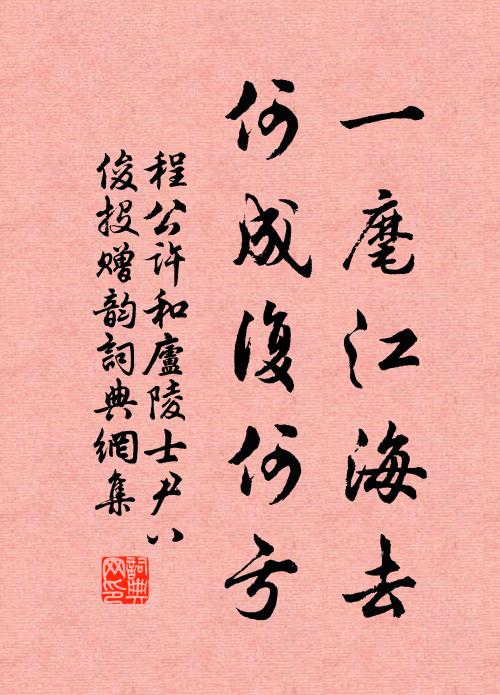 一麾江海去
何成復何亏
程公許和廬陵士尹八
俊投贈韵詞典網集
詞典
网印